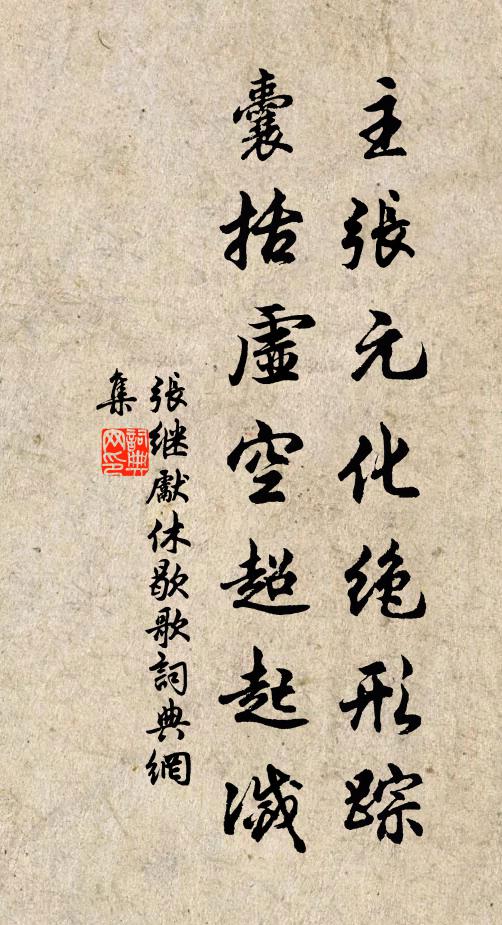 主張元化绝形踪
囊括虛空超起滅
張继獻休歇歌詞典網
集
詞典网印